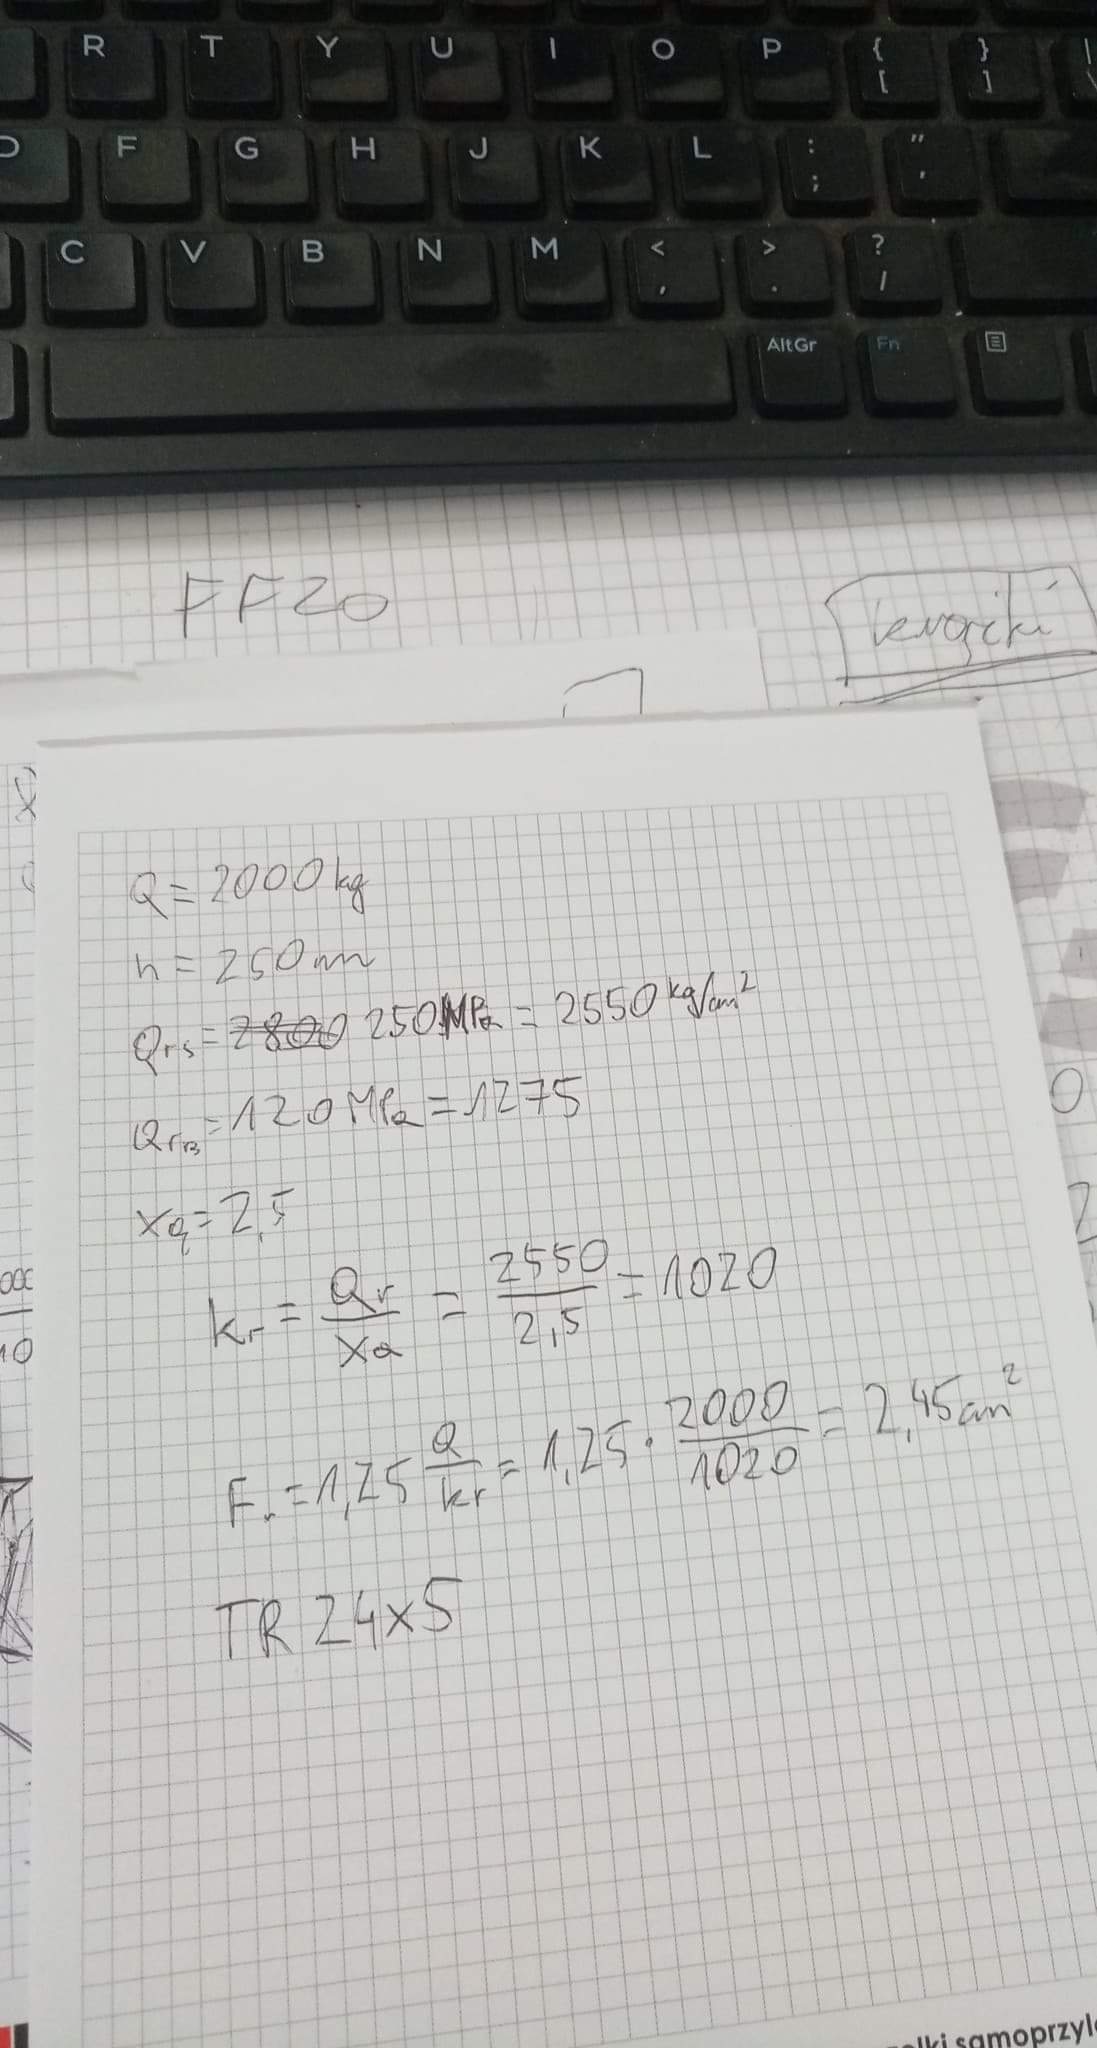 R T Y U I O P { [ } ] | \
D F G H J K L : ; " '
C V B N M < , > . ? /
AltGr Fn
FF20
Q = 2000 kg
h = 250 mm
Qrs = 2800 250 MPa = 2550 kg/cm²
QrB = 120 MPa = 1275
xq = 2,5
kr = Qr / xQ = 2550 / 2,5 = 1020
Fr = 1,25 Q / kr = 1,25 · 2000 / 1020 = 2,45 cm²
TR 24x5